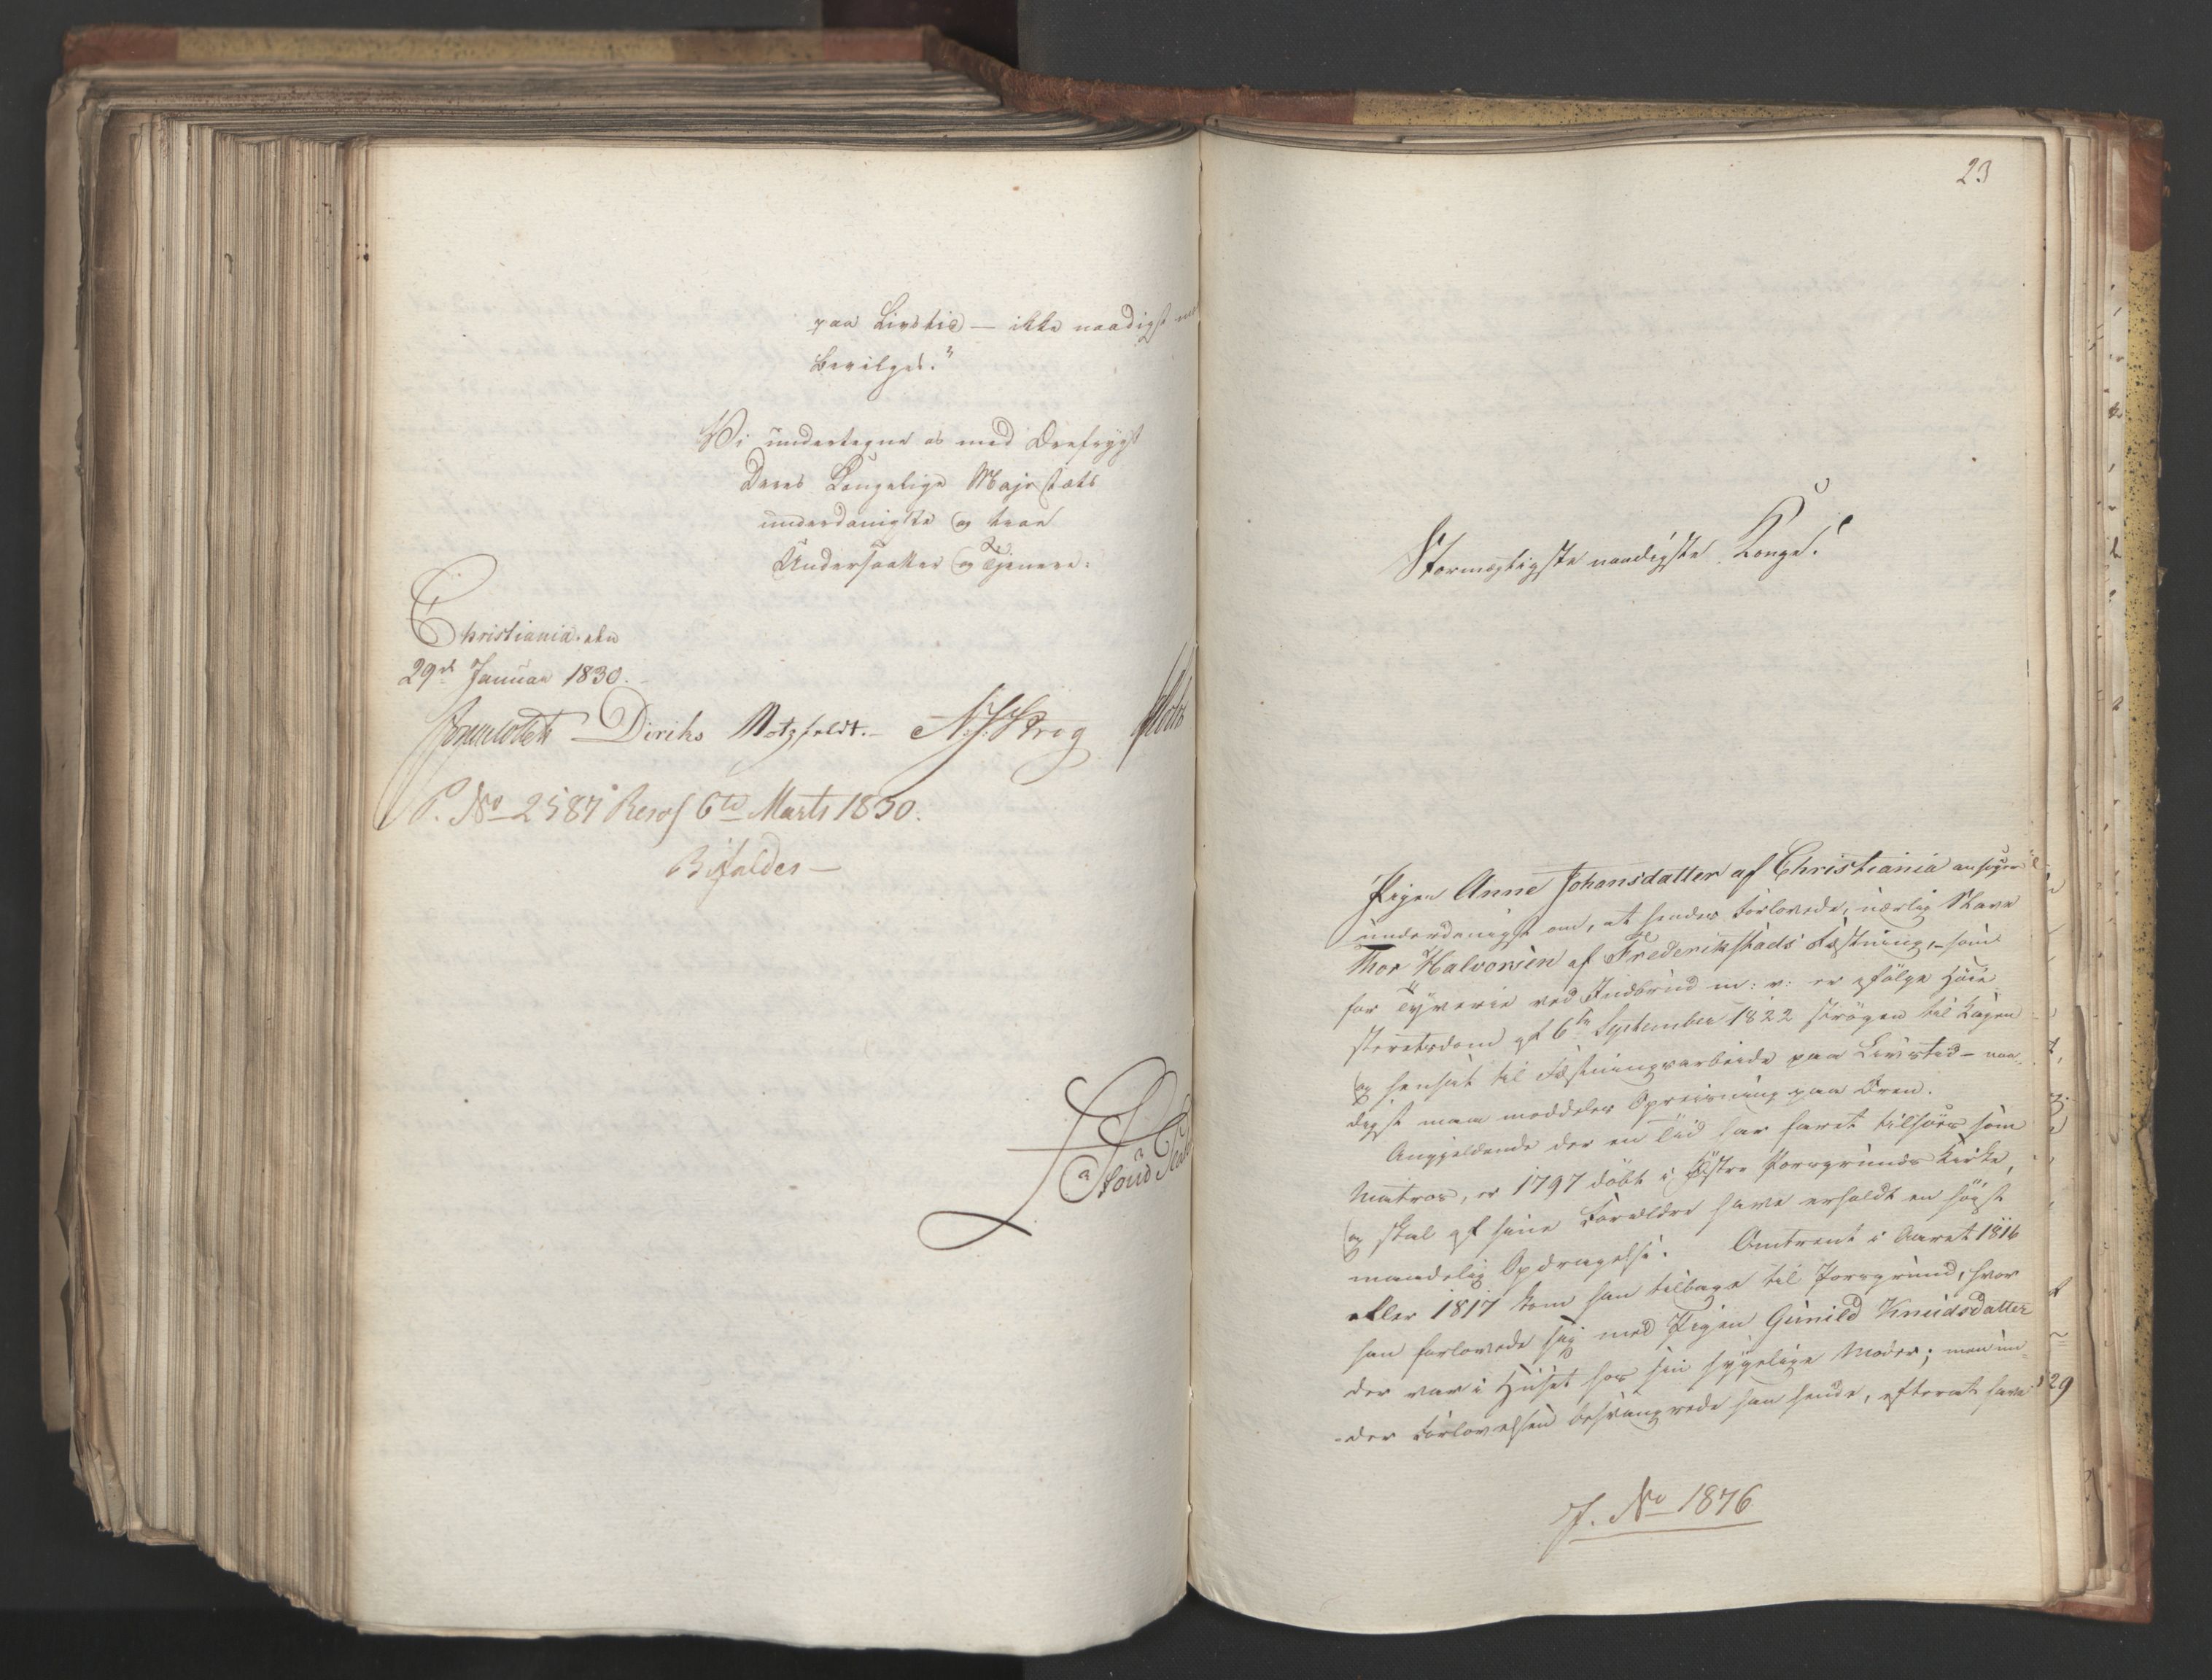 paa Livstid — ikke naadigst maa
bevilges."
Vi undertegne os med Ærefrygt
Deres Kongelige Majestæts
underdanigste og troe
Undersaatter og Tjenere.
Christiania den
29de Januar 1830.
Diriks Motzfeldt. N. J. Krog
P. No 2587 Resol 6te Marts 1830.
Bifaldes —
23
Stormægtigste naadigste Konge!
Pigen Anne Johansdatter af Christiania ansøger
underdanigst om, at hendes Forlovede, nærlig Slave
Thor Halvorsen af Frederikstads Fæstning, – som
for Tyverie ved Indbrud m: v: er ifølge Høie-
steretsdom af 6te September 1822 strøgen til Kagen
og hensat til Fæstningsarbeide paa Livstid – naa-
digst maa meddeles Opreisning paa Æren.
Angjeldende der en Tid har faret tilsøes som
Matros, er 1797 døbt i Østre Porsgrunds Kirke,
og skal af sine Forældre have erholdt en høist
maadelig Opdragelse. Omtrent i Aaret 1816
eller 1817 kom han tilbage til Porsgrund, hvor
han forlovede sig med Pigen Gunild Knudsdatter
der var i Huset hos sin sygelige Moder; men un-
der Forlovelsen besvangrede han hende, efterat have
29
J. No 1876